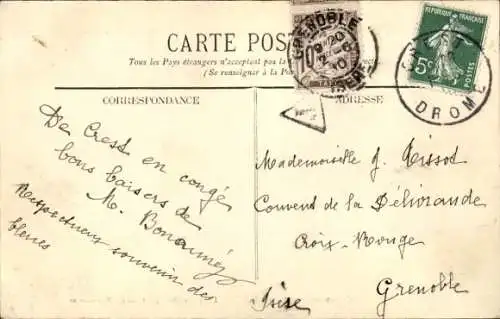 CARTE POST
Tous les Pays étrangers n'acceptent pas la
(Se renseigner à la Po
CORRESPONDANCE
ADRESSE
GRENOBLE
9 20
2 - 6
10
ISERE
10
REPUBLIQUE FRANÇAISE
5c
POSTES
CREST
DROME
De Crest en congé
bons baisers de
M.
Respectueux souvenir des
bleues
Mademoiselle J. Tissot
Couvent de la Délivrande
Croix-Rouge
Grenoble
Isère